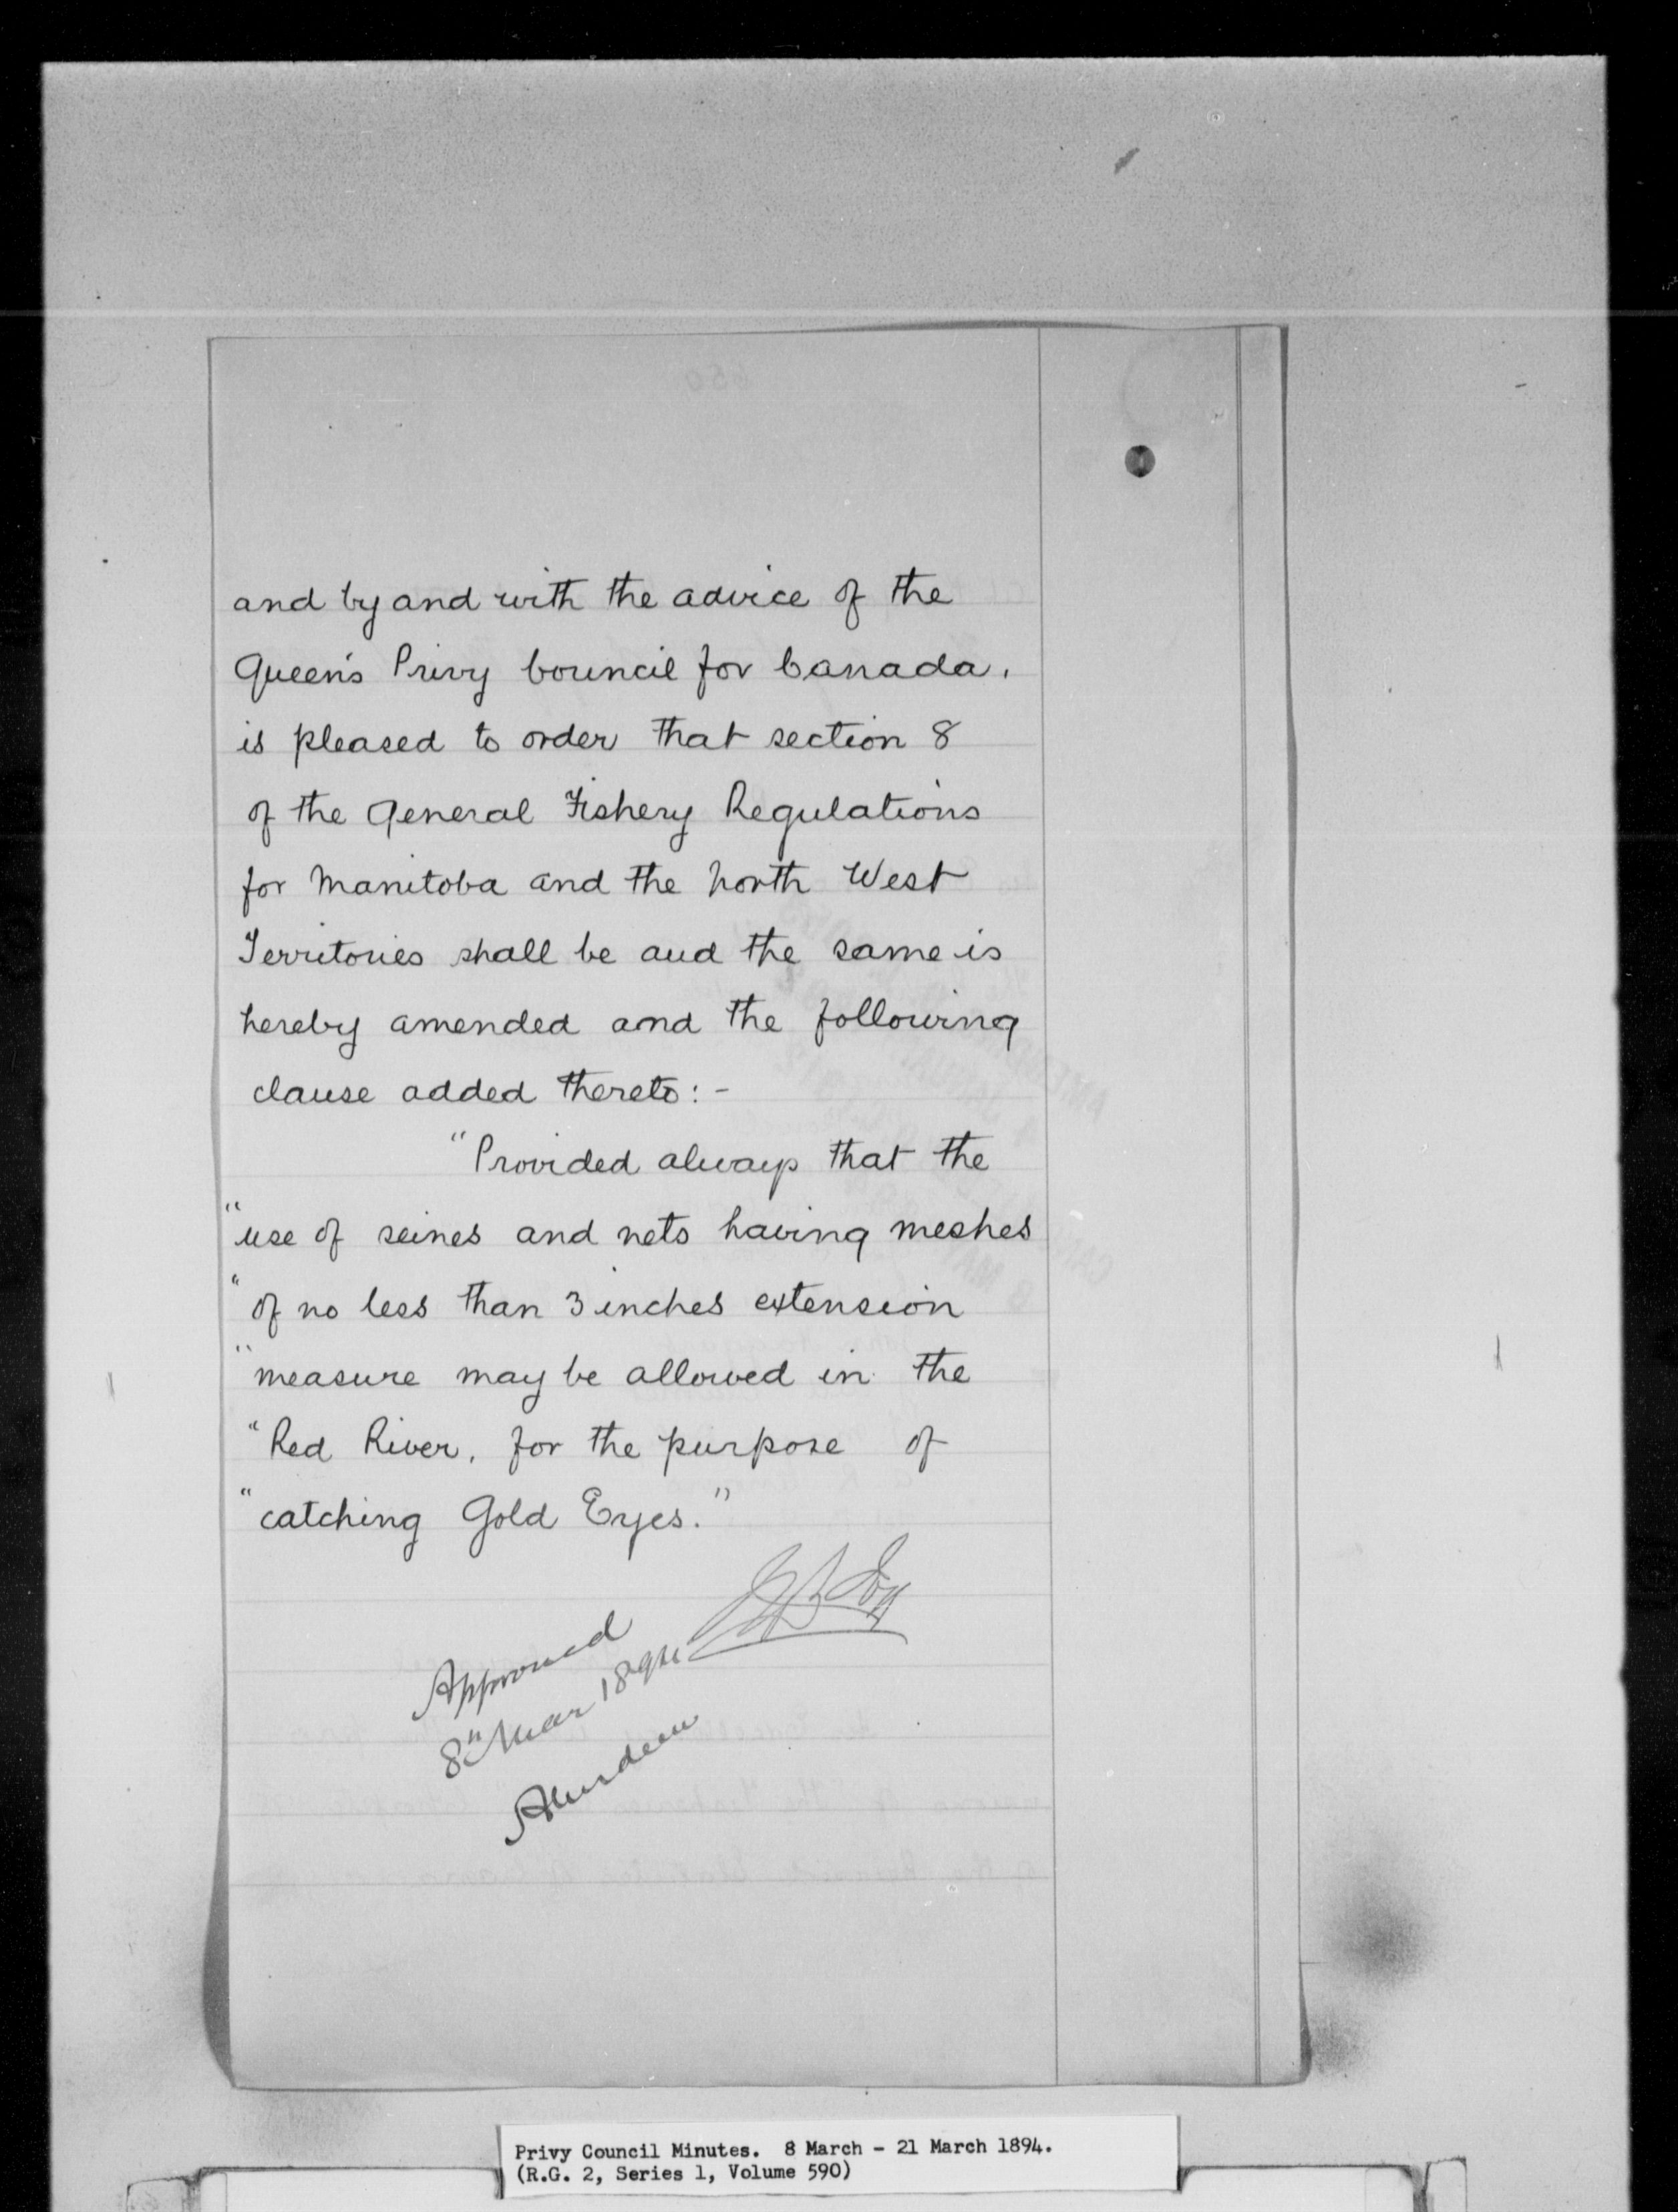 and by and with the advice of the
Queen's Privy Council for Canada,
is pleased to order that section 8
of the General Fishery Regulations
for Manitoba and the North West
Territories shall be and the same is
hereby amended and the following
clause added thereto:-
"Provided always that the
"use of seines and nets having meshes
"of no less than 3 inches extension
"measure may be allowed in the
"Red River, for the purpose of
"catching Gold Eyes."
Approved
8th Mar 1894
Aberdeen
Privy Council Minutes. 8 March - 21 March 1894.
(R.G. 2, Series 1, Volume 590)